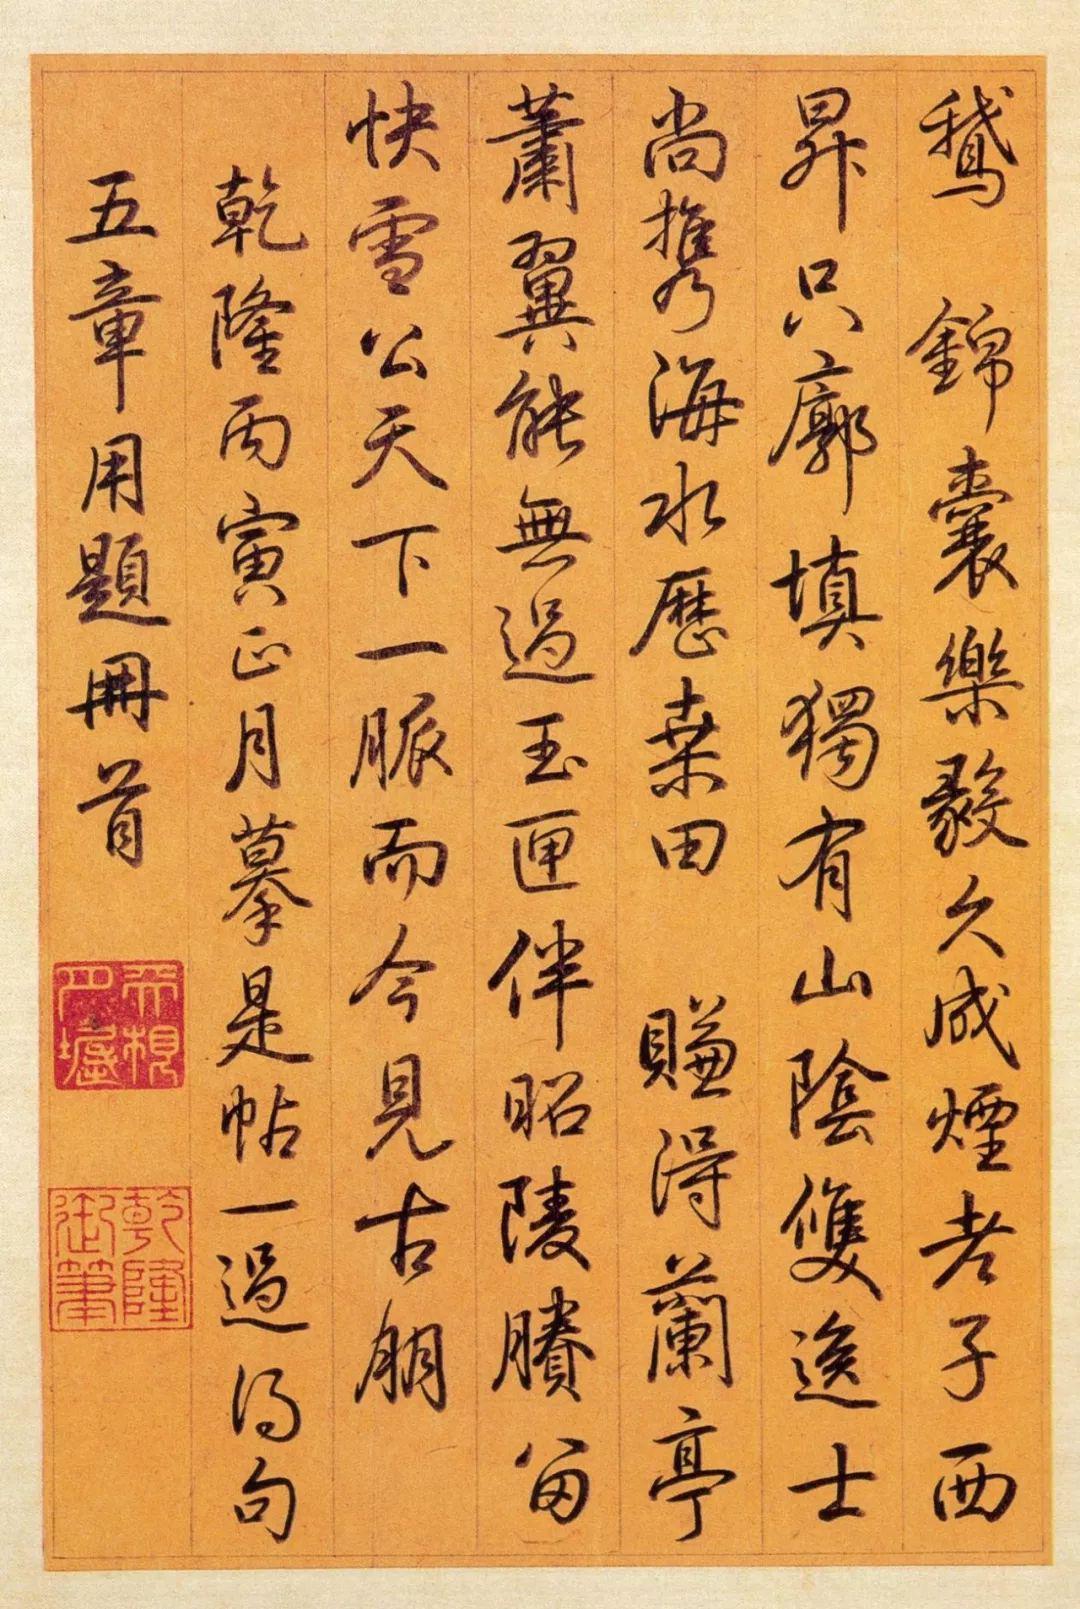 鵝　錦囊樂毅久成煙老子西
昇只廓填獨有山陰雙逸士
尚攜海水歷桑田　賺得蘭亭
蕭翼能無過玉匣伴昭陵賸留
快雪公天下一脈而今見古朋
乾隆丙寅正月摹是帖一過得句
五章用題冊首
乾隆
御筆